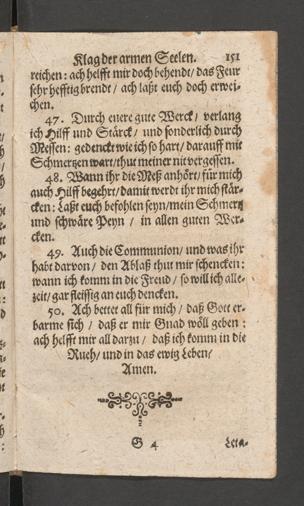 Klag der armen Seelen. 151
reichen: ach helfft mir doch behendt/ das Feur
sehr hefftig brendt/ ach laßt euch doch erwei-
chen.
47. Durch euere gute Werck/ verlang
ich Hilff und Stärck/ und sonderlich durch
Messen: gedenckt wie ich so hart/ darauff mit
Schmertzen wart/ thut meiner nit vergessen.
48. Wann ihr die Meß anhört/ für mich
auch Hilff begehrt/ damit werdt ihr mich stär-
cken: Laßt euch befohlen seyn/ mein Schmertz
und schwäre Peyn / in allen guten Wer-
cken.
49. Auch die Communion/ und was ihr
habt darvon/ den Ablaß thut mir schencken:
wann ich komm in die Freud/ so will ich alle-
zeit/ gar fleissig an euch dencken.
50. Ach bettet all für mich / daß Gott er-
barme sich / daß er mir Gnad wöll geben :
ach helfft mir all darzu / daß ich komm in die
Rueh/ und in das ewig Leben/
Amen.
G 4 Leta-